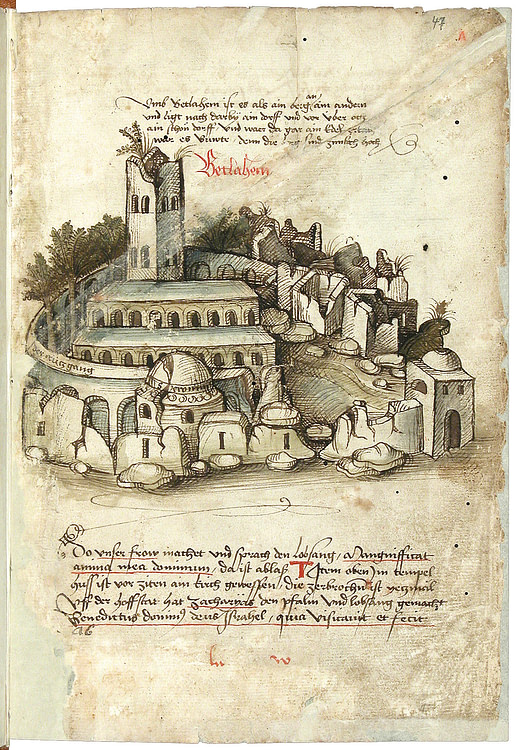 47
A
Vmb Betlahem ist es als ain berg an am andern
vnd ligt nach darby ain dorff vnd vor vber och
ain schon dorff vnd waer da gar ain Edel
war es vnntz, denn die berg sind zimlich hoch
Betlahem
Do vnser frow machet vnd sprach den lobsang, Mangnifficat
anima mea dominum, da ist ablaß Item oben Im tempel
huss ist vor ziten ain kirch gewessen, die zerbrochn ist
vff der hoffstat hat Zacharias den psalm vnd lobsang gemacht
Benedictus domini deus Israhel, quia visitavit et fecit